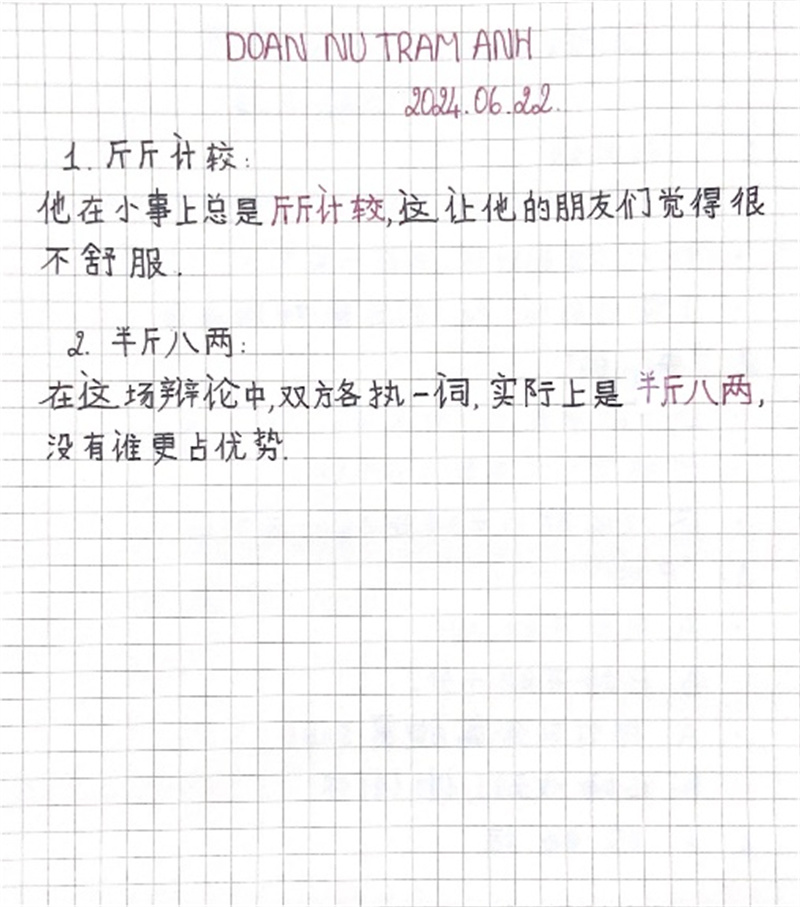 DOAN NU TRAM ANH
2024.06.22.
1. 斤斤计较:
他在小事上总是斤斤计较,这让他的朋友们觉得很
不舒服.
2. 半斤八两:
在这场辩论中,双方各执一词,实际上是半斤八两,
没有谁更占优势.